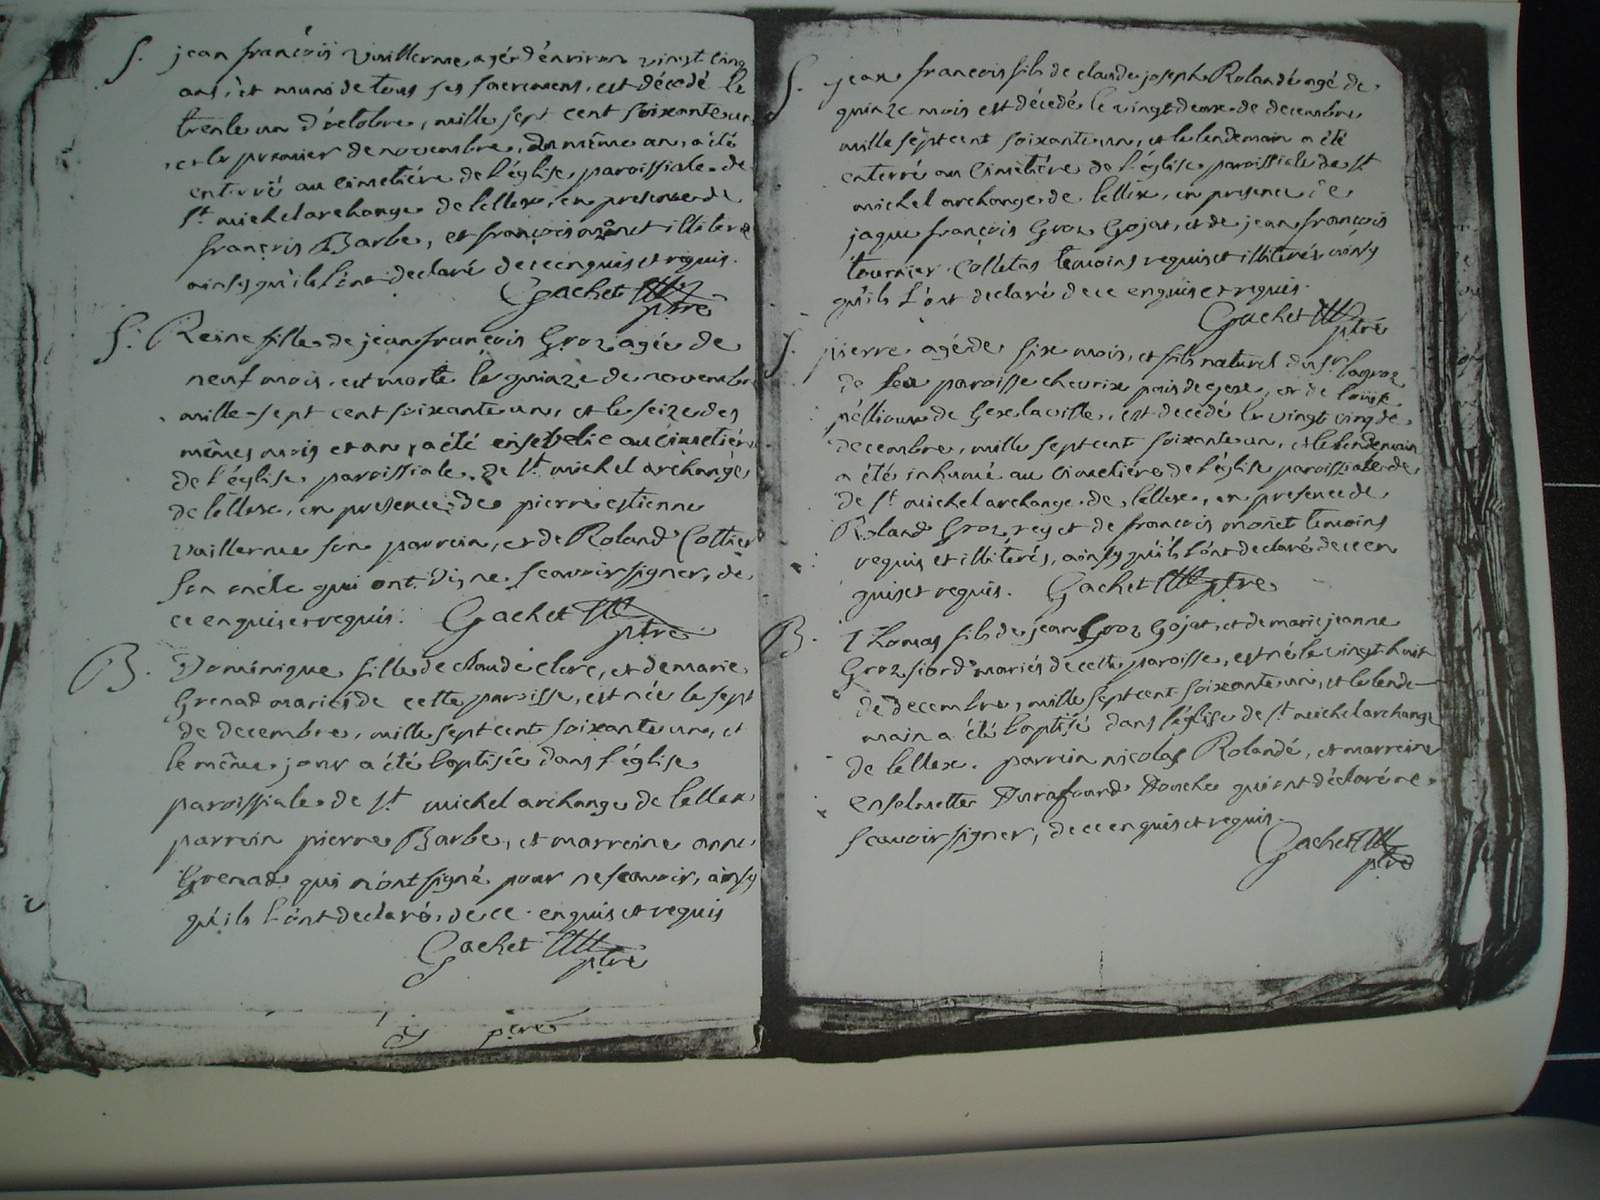 S. jean françois Vuillerme agé d'environ vingt cinq
ans, et muni de tous ses sacremens, est décédé le
trente un d'octobre, mille sept cent soixante un
et le premier de novembre, du même an, a été
enterré au cimetière de l'église paroissiale de
St michel archange de lellex, en presence de
françois Barbe, et françois monet illiteré
ainsy qu'ils l'ont declaré de ce enquis et requis.
Gachet ptre
S. Reine fille de jean françois Groz agée de
neuf mois, est morte le quinze de novembre
mille sept cent soixante un, et le seize des
mêmes mois et an, a été ensevelie au cimetière
de l'église paroissiale de St michel archange
de lellex, en presence de pierre estienne
vuillerme son parrein, et de Roland Cottier
son oncle qui ont dis ne scavoir signer, de
ce enquis et requis. Gachet ptre
B. Dominique fille de claude clerc, et de marie
Grenad mariés de cette paroisse, est née le sept
de decembre, mille sept cent soixante un, et
le même jour a été baptisée dans l'église
paroissiale de St michel archange de lellex
parrein pierre Barbe, et marreine anne
Grenad qui n'ont signé pour ne scavoir, ainsy
qu'ils l'ont declaré, de ce enquis et requis
Gachet ptre
ptre
S. jean françois fils de claude joseph Rolandé agé de
quinze mois est décédé le vingt deux de decembre
mille sept cent soixante un, et le lendemain a été
enterré au Cimetière de l'église paroissiale de St
michel archange de lellex, en presence de
jaque françois Groz Gojat, et de jean françois
tournier Colletas temoins requis et illiterés ainsy
qu'ils l'ont declaré de ce enquis et requis.
Gachet ptre
S. pierre agé de six mois, et fils naturel du Sr
de la paroisse chevrix païs de gex, et de louise
pellioux de Gex la ville, est decédé le vingt cinq de
decembre, mille sept cent soixante un, et le lendemain
a été inhumé au cimetière de l'église paroissiale de
de St michel archange de lellex, en presence de
Roland Groz rey et de françois monet temoins
requis et illiterés, ainsy qu'ils l'ont declaré de ce en
quis et requis. Gachet ptre
B. Thomas fils de jean Groz Gojat, et de marie jeanne
Groz fiord mariés de cette paroisse, est né le vingt huit
de decembre, mille sept cent soixante un, et le lende-
main a été baptisé dans l'église de St michel archange
de lellex. parrein nicolas Rolandé, et marreine
Durafourd qui ont déclaré ne
scavoir signer, de ce enquis et requis.
Gachet ptre